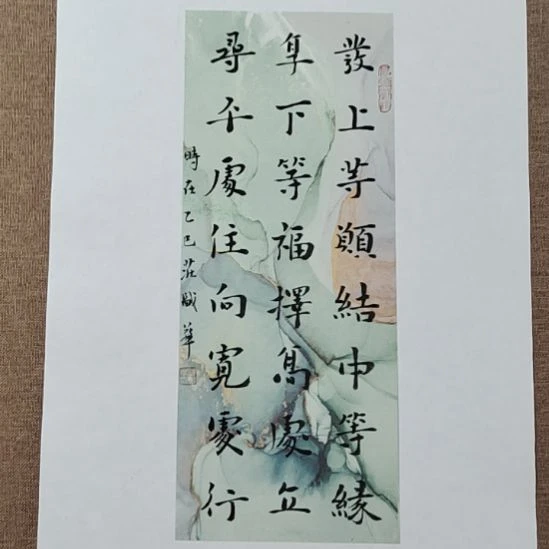 發上等願結中等緣
享下等福擇高處立
尋平處住向寬處行
時在乙巳莊盛華